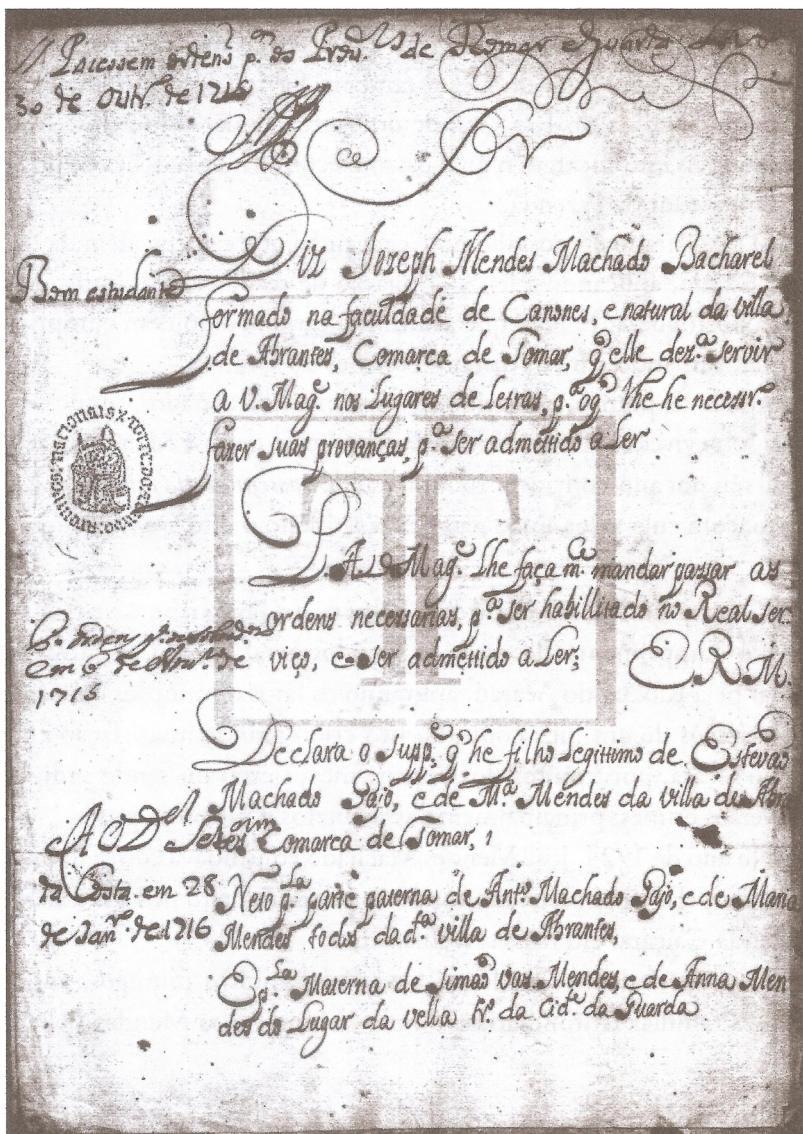 Passem ordens p.ª os Prov.ʳᵉˢ de Tomar e Guarda
30 de Outr.º de 1715
Sor
Diz Jozeph Mendes Machado Bacharel
Bom estudante
formado na faculdade de Canones, e natural da villa
de Abrantes, Comarca de Tomar, q̃ elle dez.ª servir
a V. Mag.ᵉ nos Lugares de Letras, p.ª o q̃ lhe he necessr.º
fazer suas provanças, p.ª ser admettido a Ler
ARCHIVOS NACIONAIS X TORRE DO TOMBO
TT
P. A V Mag.ᵉ lhe faça m.ᶜᵉ mandar passar as
ordens necessarias, p.ª ser habillitado no Real ser
viço, e ser admettido a Ler;
E. R. M.
ordens
em 6 de Nov.ʳᵒ de
1715
Declara o Supp.ᵉ q̃ he filho Legittimo de Estevaõ
Machado Pajó, e de M.ª Mendes da villa de Abra
Comarca de Tomar,
A O D.ᵒʳ
da Costa. em 28
de Jan.ʳᵒ de 1716
Neto p.ˡᵃ parte paterna de Ant.º Machado Pajó, e de Maria
Mendes todos da d.ª villa de Abrantes,
E p.ˡᵃ Materna de Simaõ Vas Mendes, e de Anna Men
des do Lugar da vella tr.º da Cid.ᵉ da Guarda